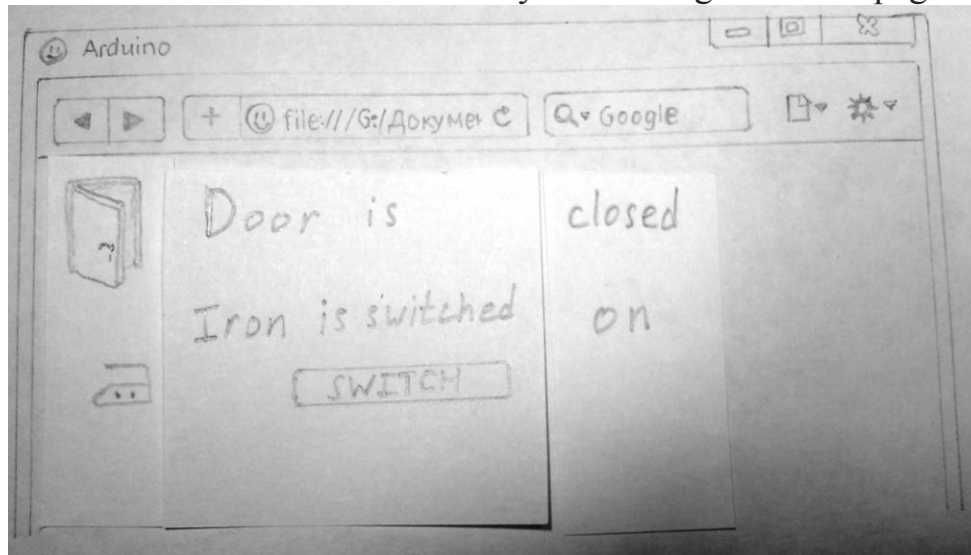 Arduino
+ file:///G:/Докумен Google
Door is closed
Iron is switched on
SWITCH